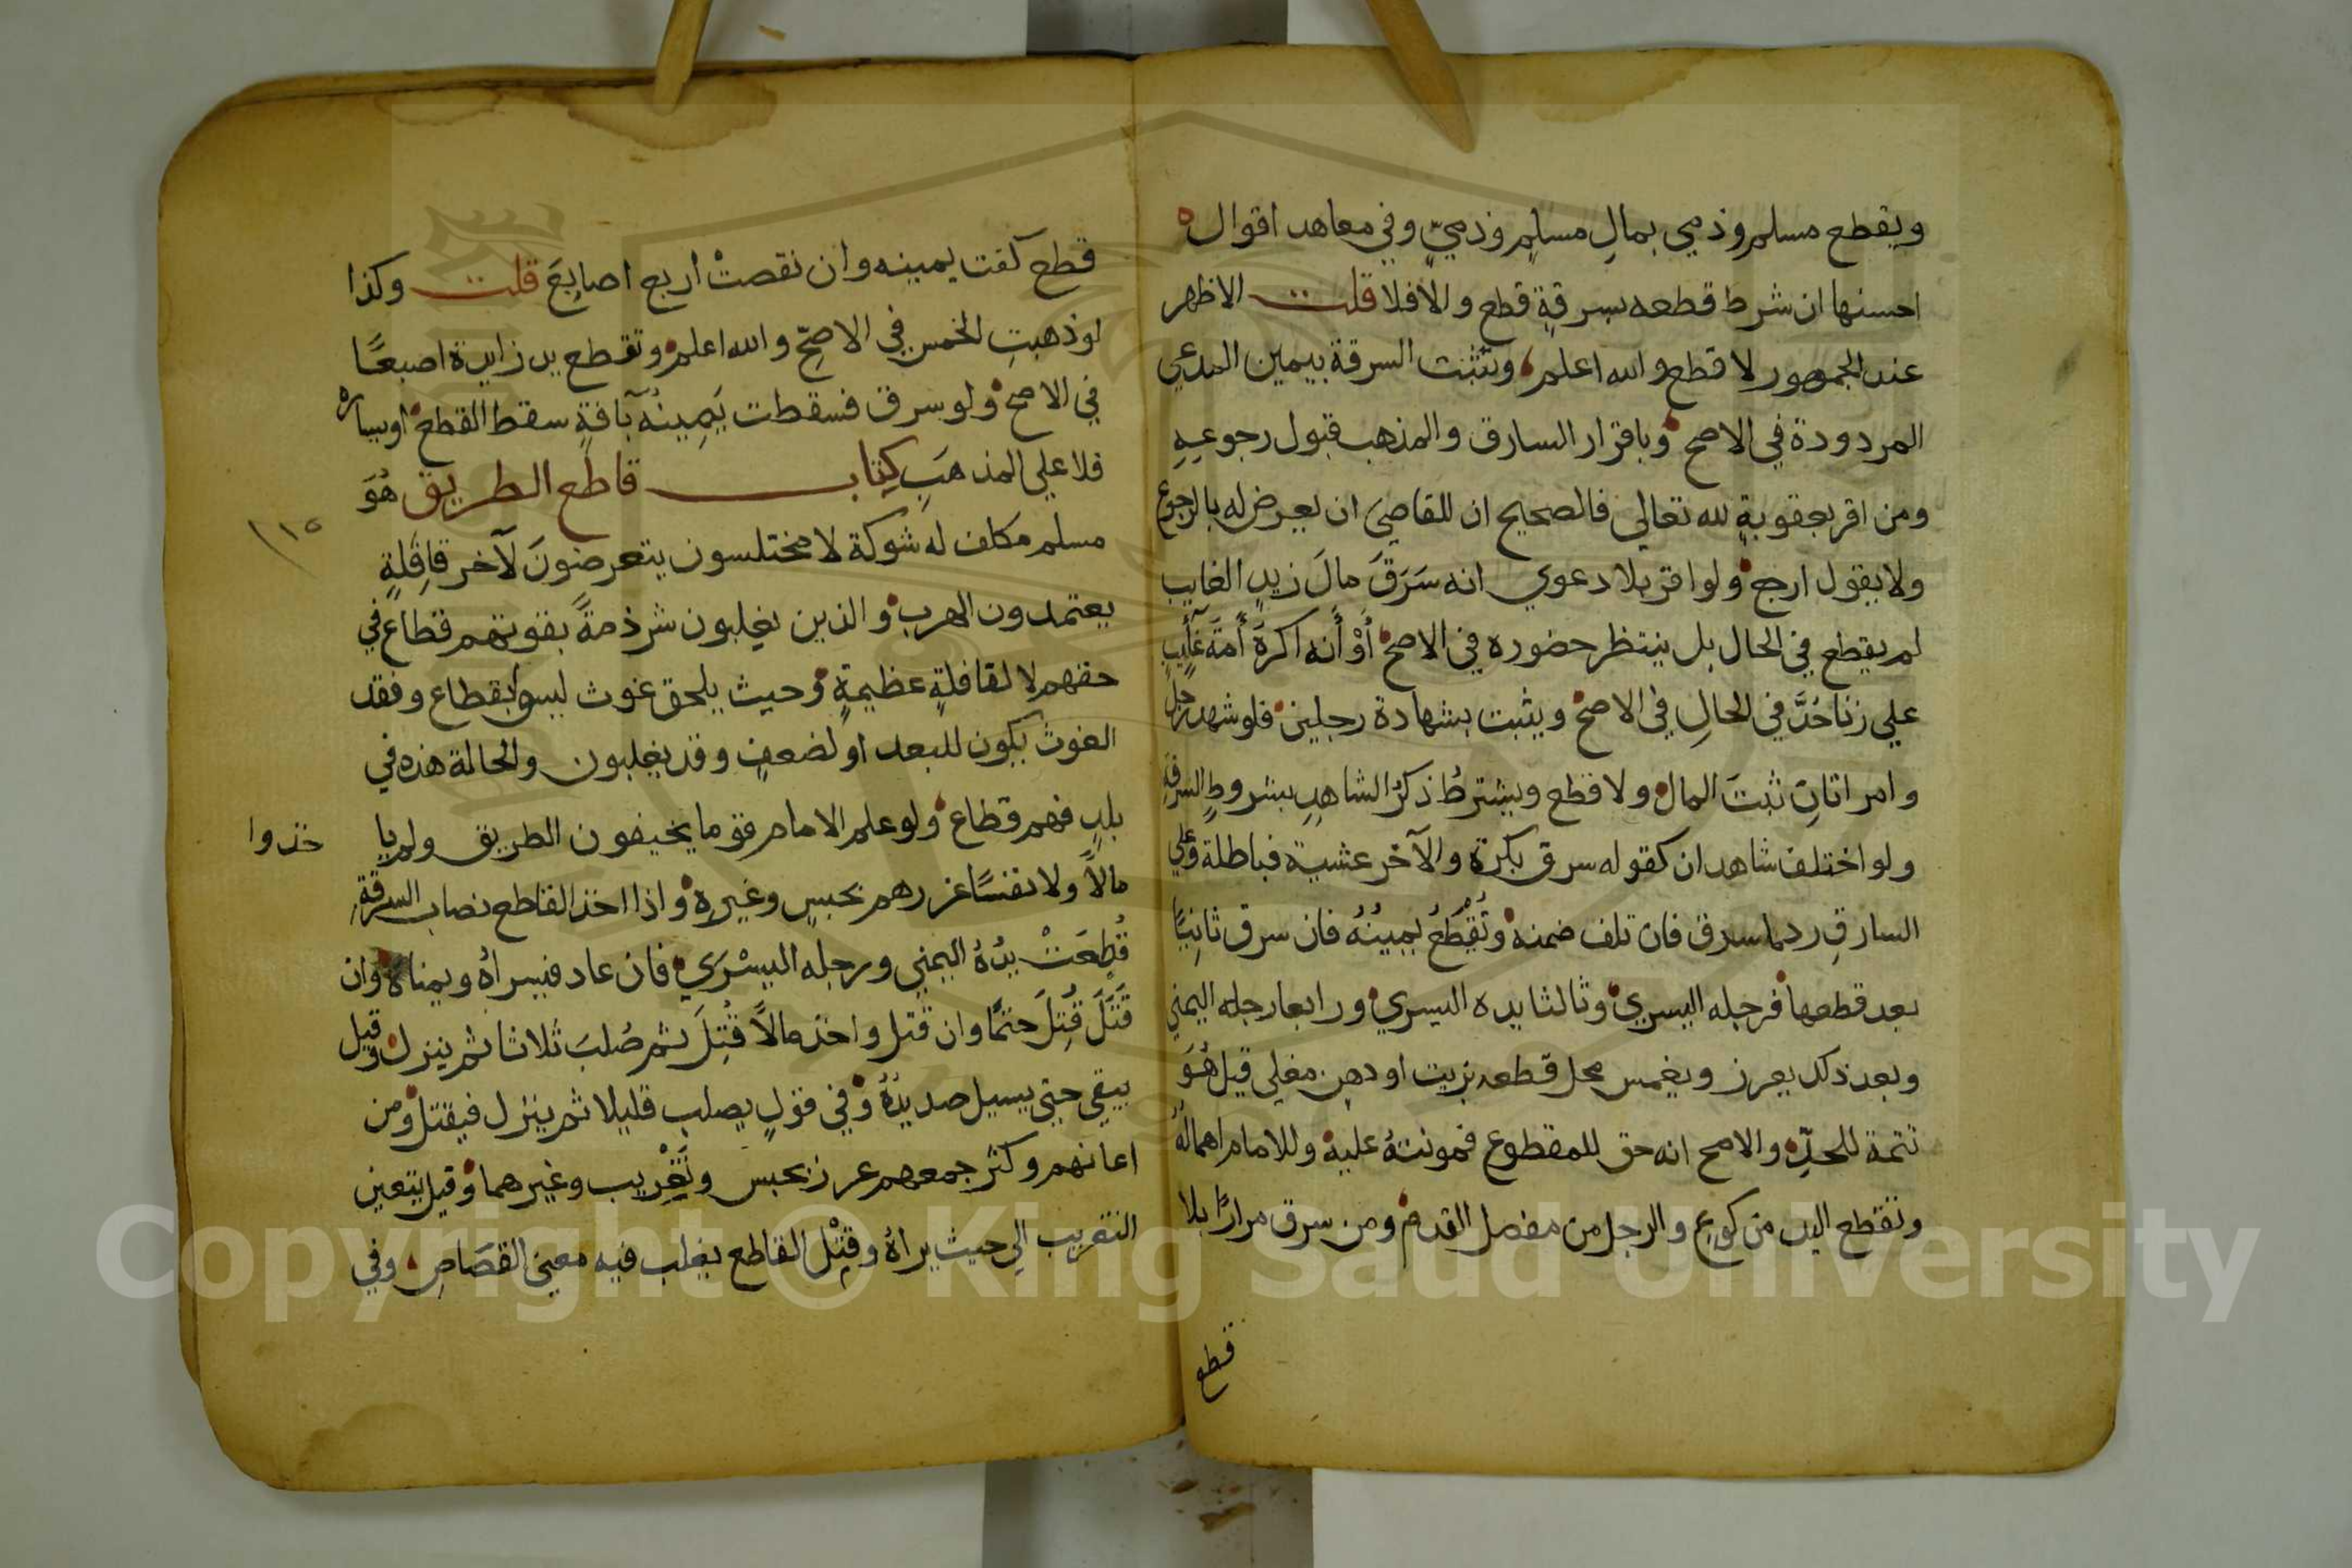 ويقطع مسلم وذمي بمالِ مسلمٍ وذميٍّ وفي معاهد اقوال ه
احسنها ان شرط قطعه بسرقةٍ قطع والا فلا قلت الاظهر
عند الجمهور لا قطع والله اعلم وتثبت السرقة بيمين المدعي
المردودة في الاصح وباقرار السارق والمذهب قبول رجوعهِ
ومن اقر بعقوبةٍ لله تعالي فالصحيح ان للقاضي ان يعرض له بالرجوع
ولا يقول ارجع ولو اقر بلا دعوي انه سَرَقَ مالَ زيدٍ الغايب
لم يقطع في الحال بل ينتظر حضوره في الاصح أوْ أنه اكرهَ أَمَةَ غايبٍ
علي زنا حُدَّ في الحالِ في الاصح ويثبت بشهادة رجلين فلو شهد رجل
وامراتانِ ثبتَ المال ولا قطع ويشترطُ ذكرُ الشاهدِ بشروطِ السرقةِ
ولو اختلف شاهدان كقوله سرق بكرة والآخر عشية فباطلة وعلي
السارقِ رد ما سرق فان تلف ضمنه وتُقْطَعُ يمينُهُ فان سرق ثانِيًا
بعد قطعها فرجله اليسري وثالثا يده اليسري ورابعا رجله اليمني
وبعد ذلك يعرز ويغمس محل قطعه بزيت او دهن مغلي قيل هُوَ
تتمة للحدِّ والاصح انه حق للمقطوع فمونتهُ عليه وللامام اهمالُهُ
وتقطع اليد من كوعٍ والرجل من مفصل القدم ومن سرق مرارًا بلا
قطع
قطع كفت يمينه وان نقصتْ اربع اصابِعَ قلت وكذا
لو ذهبتِ الخمس في الاصحِّ والله اعلم وتقطع يد زايدة اصبعًا
في الاصح ولو سرق فسقطت يَمِينُه بآفةٍ سقط القطع او يساره
فلا علي المذهَبِ كتاب قاطع الطريق هُوَ
مسلم مكلف له شوكة لا مختلسون يتعرضونَ لآخر قافِلةٍ
١١٥
يعتمدون الهرب والذين يغلبون شرذمةً بقوتهم قطاع في
حقهم لا لقافلةٍ عظيمةٍ وحيث يلحق غوث ليسوا بقطاع وفقد
الغوث يكون للبعد او لضعفٍ وقد يغلبون والحالة هذه في
بلدٍ فهم قطاع ولو علم الامام قوما يخيفون الطريق ولم يا خذوا
مالاً ولا نفسًا عزرهم بحبسٍ وغيرِه واذا اخذ القاطع نصاب السرقةِ
قُطِعَتْ يدُهُ اليمني ورجله اليسْرَي فان عاد فيسراهُ ويمناهُ وان
قَتَلَ قُتِلَ حتمًا وان قتل واخذ مالاً قُتِلَ ثم صُلبَ ثلاثا ثم ينزل وقيل
يبقي حتي يسيل صديدُهُ وفي قولٍ يصلب قليلا ثم ينزل فيقتل ومن
اعانهم وكثر جمعهم عرز بحبس وتَغْرِيب وغيرهما وقيل يتعين
التغريب الي حيث يراهُ وقتْل القاطع يغلب فيه معني القصَاصِ وفي
Copyright © King Saud University